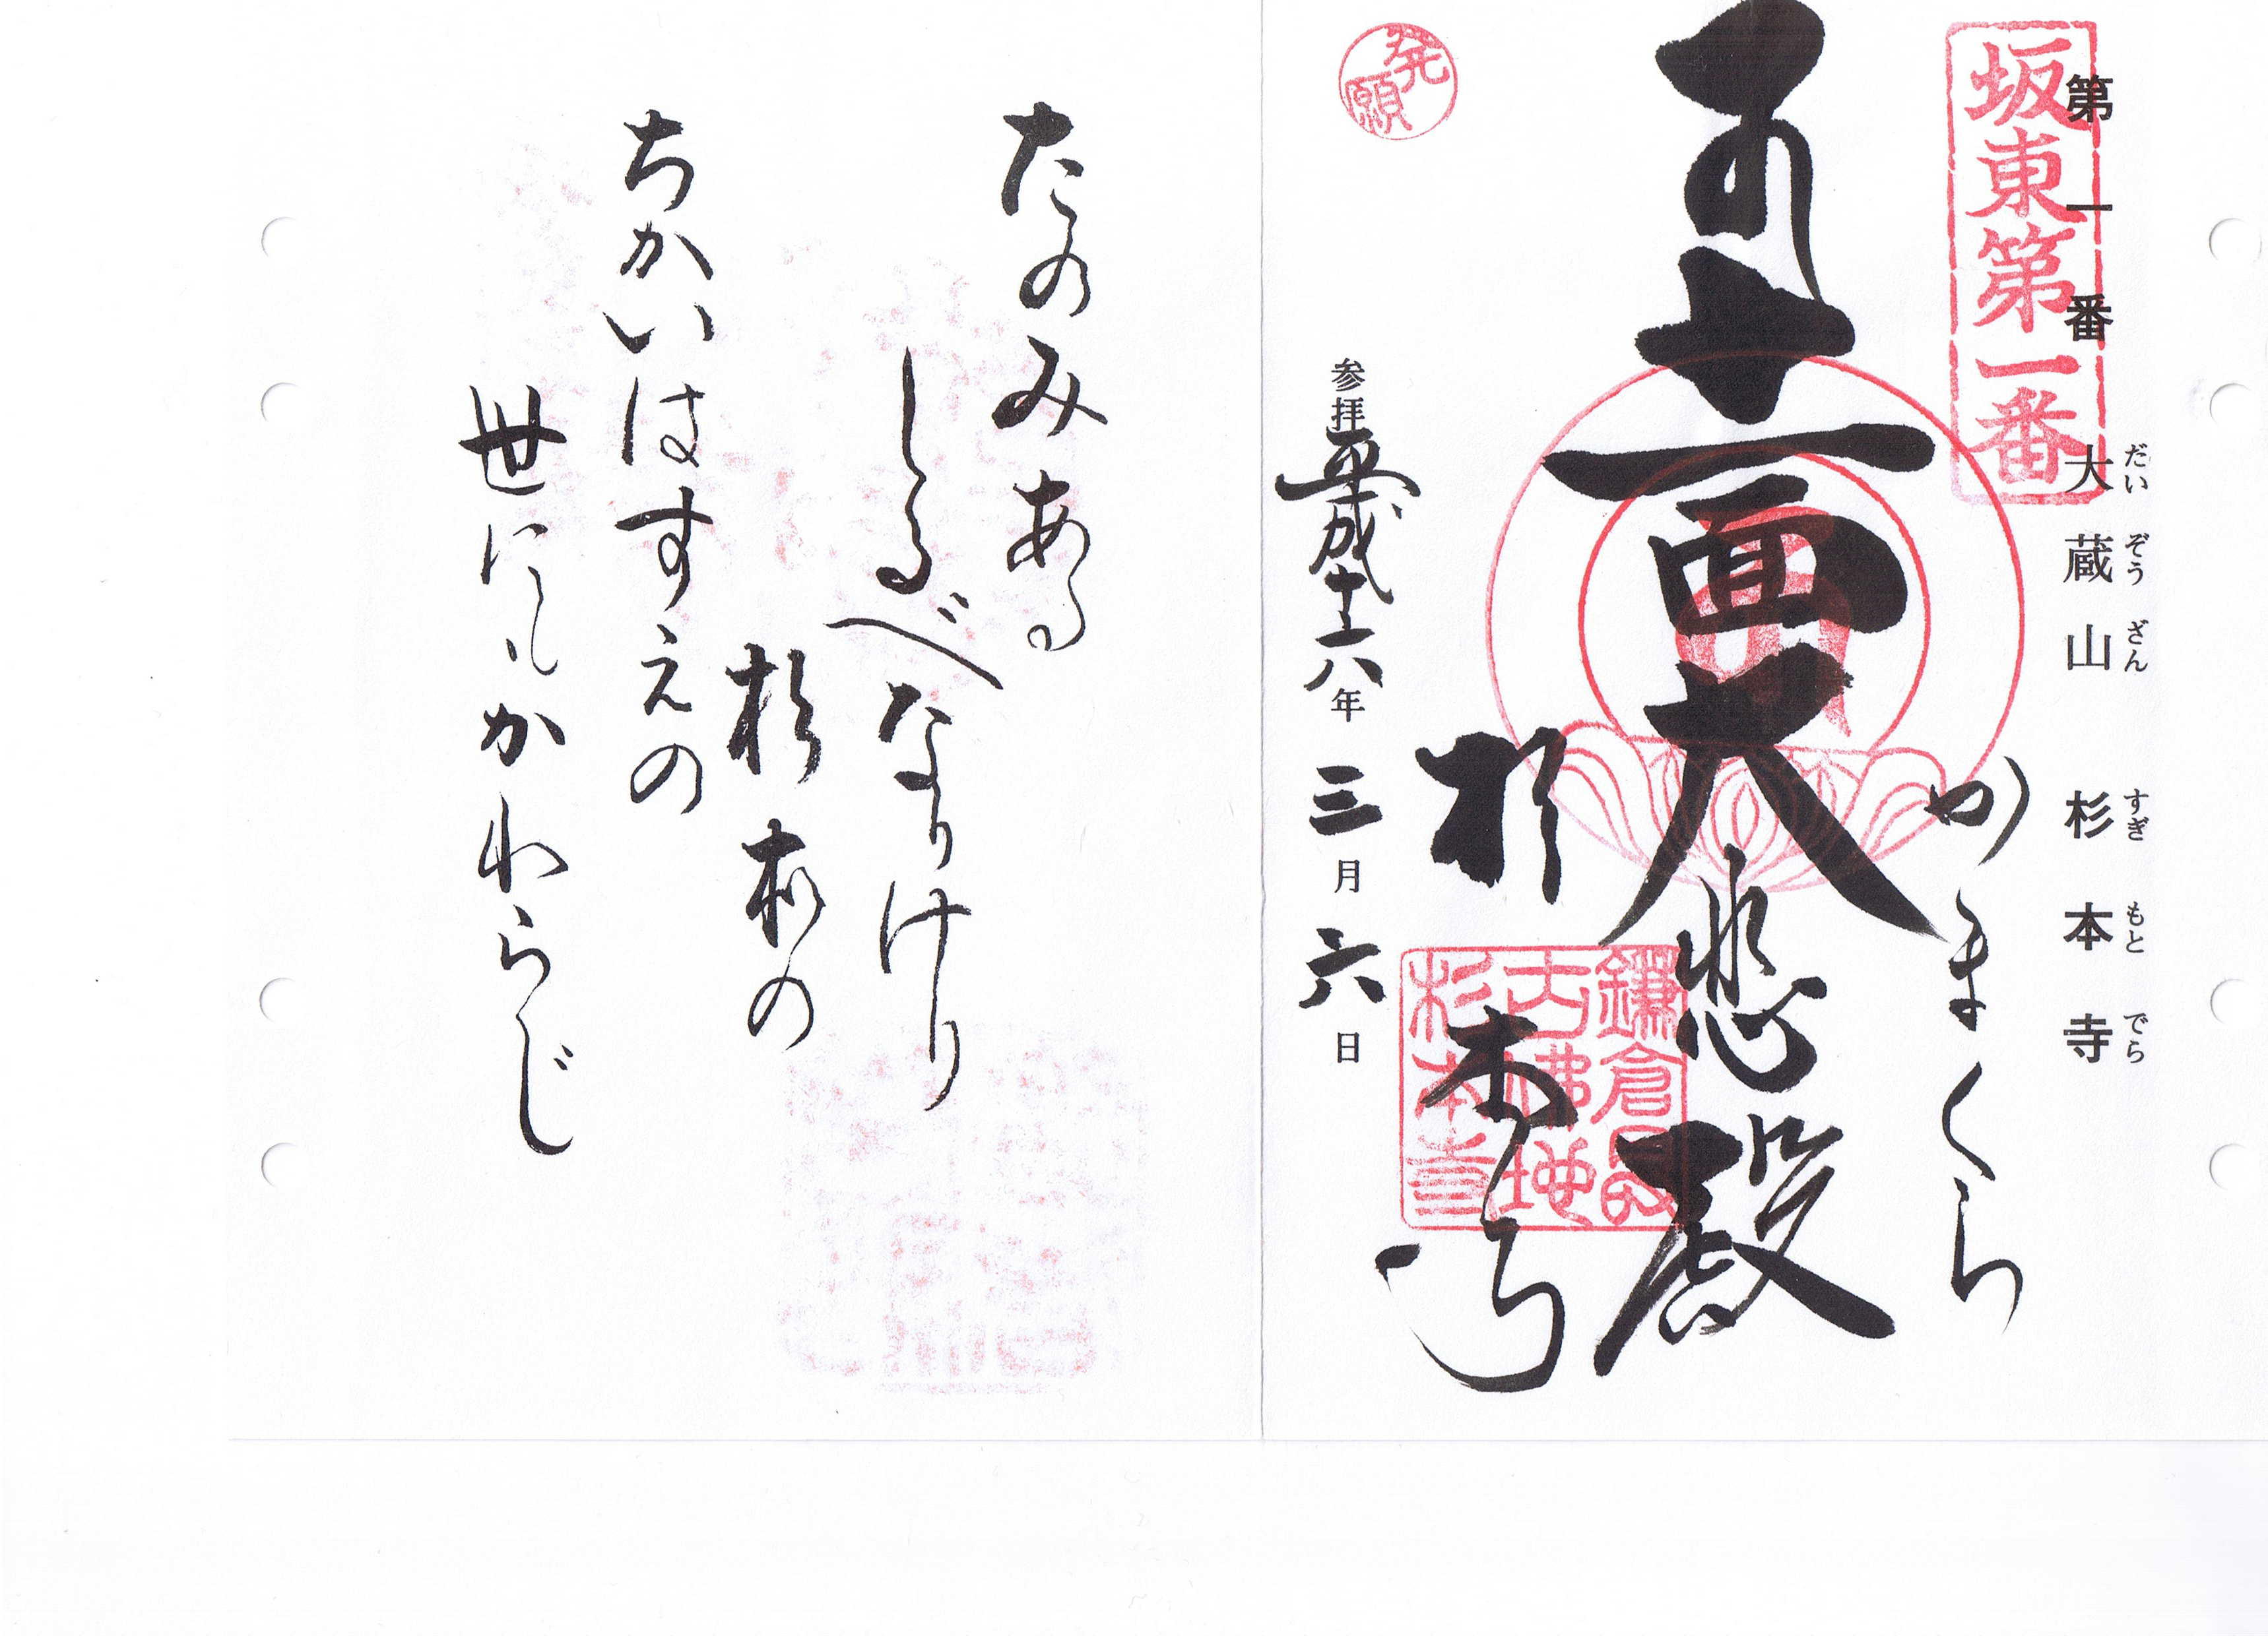 坂東第一番
第一番 大蔵山 杉本寺
だいぞうざん すぎもとでら
かまくら
十一面大悲殿
杉本寺
鎌倉最
古佛地
杉本寺
発願
参拝平成十八年三月六日
たのみある
しるべなりけり
杉本の
ちかいはすえの
世にもかわらじ